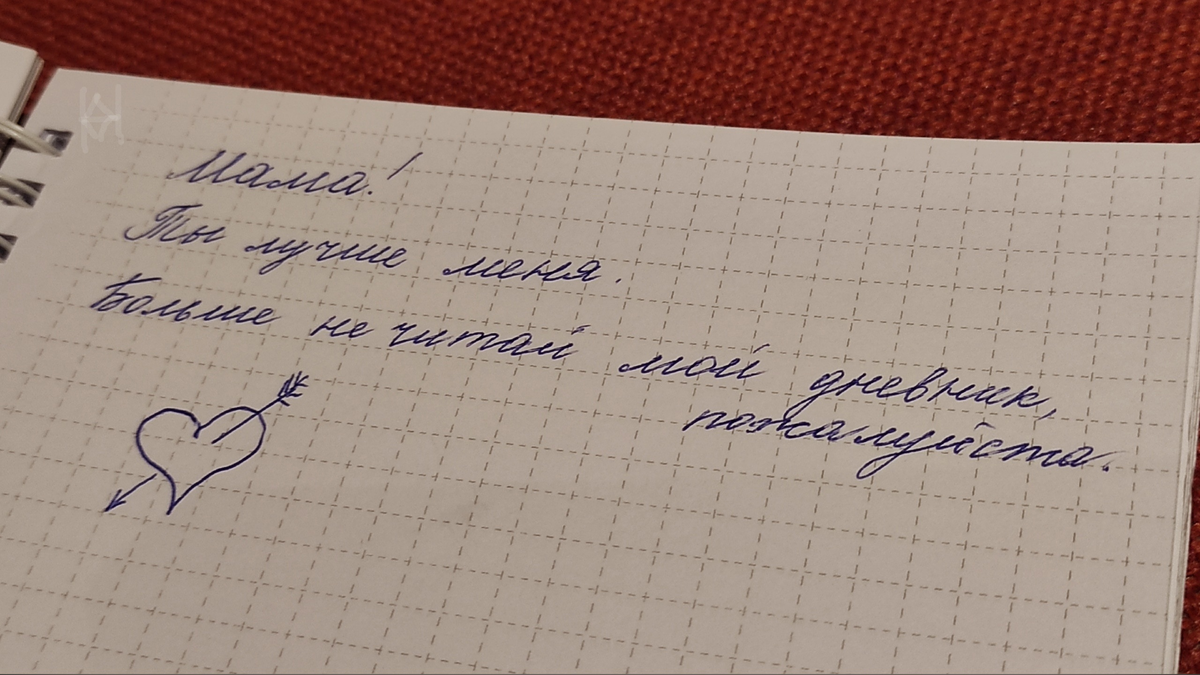 Мама!
Ты лучше меня.
Больше не читай мой дневник,
пожалуйста.